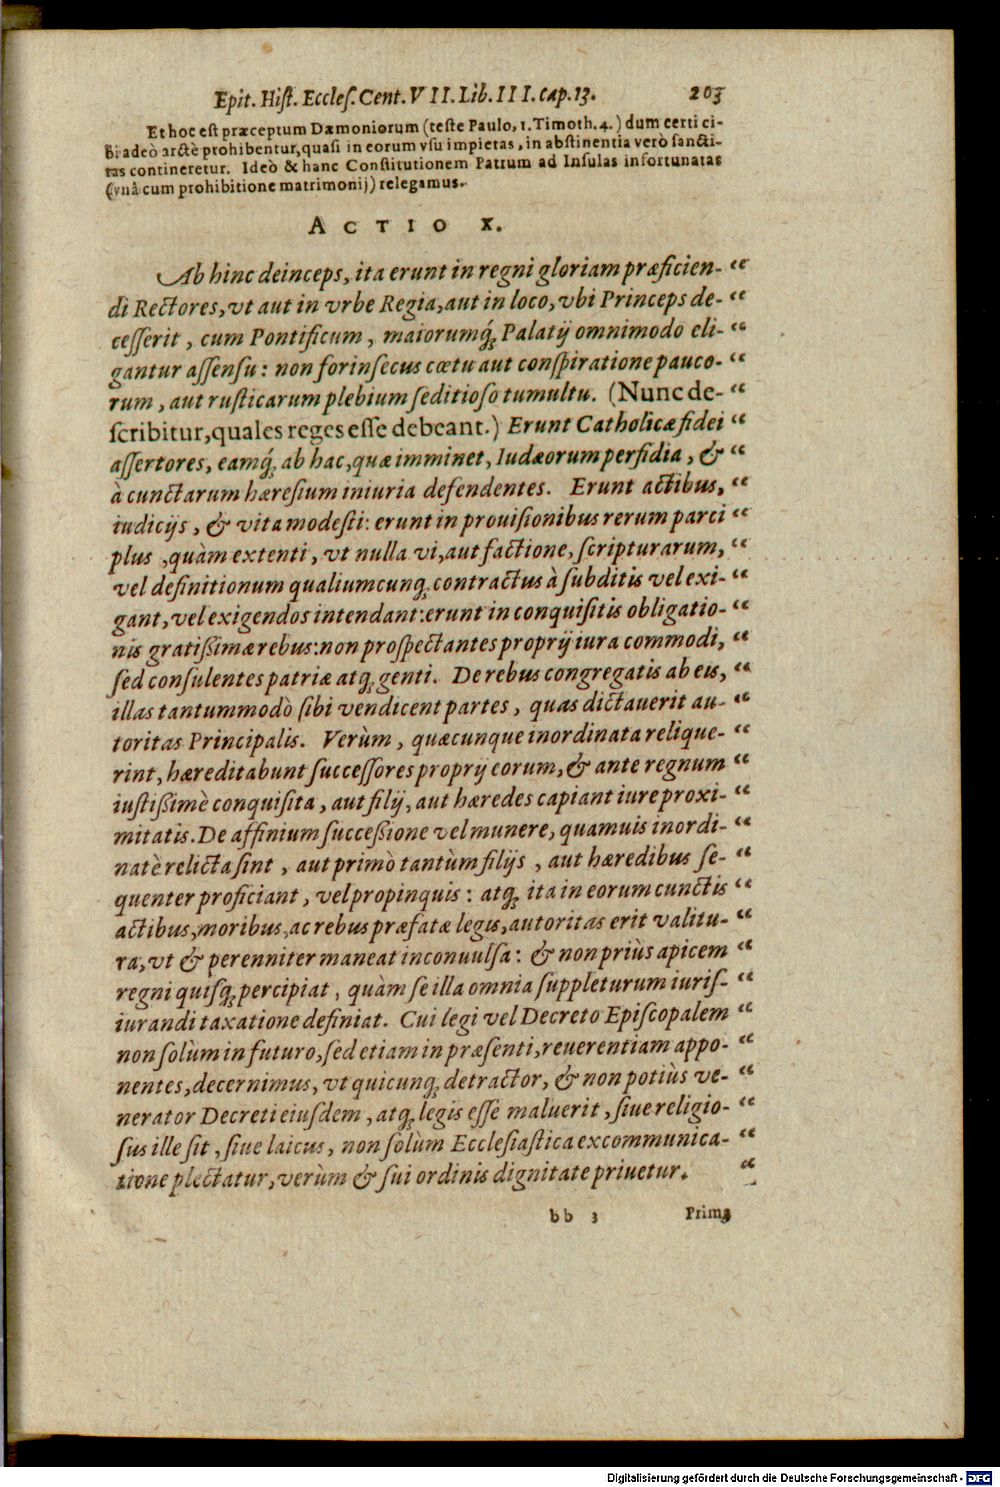 Epit. Hiſt. Eccleſ. Cent. VII. Lib. III. cap. 13. 203
Et hoc eſt præceptum Dæmoniorum (teſte Paulo, 1. Timoth. 4.) dum certi ci-
bi adeò arctè prohibentur, quaſi in eorum vſu impietas, in abſtinentia verò ſancti-
tas contineretur. Ideò & hanc Conſtitutionem Patrum ad Inſulas infortunatas
(vnà cum prohibitione matrimonij) relegamus.
ACTIO X.
Ab hinc deinceps, ita erunt in regni gloriam præficien- “
di Rectores, vt aut in vrbe Regia, aut in loco, vbi Princeps de- “
ceſſerit, cum Pontificum, maiorumq́ꝫ Palatij omnimodo eli- “
gantur aſſenſu: non forinſecus cœtu aut conſpiratione pauco- “
rum, aut ruſticarum plebium ſeditioſo tumultu. (Nunc de- “
ſcribitur, quales reges eſſe debeant.) Erunt Catholicæ fidei “
aſſertores, eamq́ꝫ ab hac, quæ imminet, Iudæorum perfidia, & “
à cunctarum hæreſium iniuria defendentes. Erunt actibus, “
iudicijs, & vita modeſti: erunt in prouiſionibus rerum parci “
plus, quàm extenti, vt nulla vi, aut factione, ſcripturarum, “
vel definitionum qualiumcunqꝫ contractus à ſubditis vel exi- “
gant, vel exigendos intendant: erunt in conquiſitis obligatio- “
nis gratißimæ rebus: non proſpectantes proprij iura commodi, “
ſed conſulentes patriæ atqꝫ genti. De rebus congregatis ab eis, “
illas tantummodò ſibi vendicent partes, quas dictauerit au- “
toritas Principalis. Verùm, quæcunque inordinata relique- “
rint, hæreditabunt ſucceſſores proprij eorum, & ante regnum “
iuſtißimè conquiſita, aut filij, aut hæredes capiant iure proxi- “
mitatis. De affinium ſucceßione vel munere, quamuis inordi- “
natè relicta ſint, aut primò tantùm filijs, aut hæredibus ſe- “
quenter proficiant, vel propinquis: atqꝫ ita in eorum cunctis “
actibus, moribus, ac rebus præfatæ legis, autoritas erit valitu- “
ra, vt & perenniter maneat inconuulſa: & non priùs apicem “
regni quiſqꝫ percipiat, quàm ſe illa omnia ſuppleturum iuriſ- “
iurandi taxatione definiat. Cui legi vel Decreto Epiſcopalem “
non ſolùm in futuro, ſed etiam in præſenti, reuerentiam appo- “
nentes, decernimus, vt quicunqꝫ detractor, & non potiùs ve- “
nerator Decreti eiuſdem, atqꝫ legis eſſe maluerit, ſiue religio- “
ſus ille ſit, ſiue laicus, non ſolùm Eccleſiaſtica excommunica- “
tione plectatur, verùm & ſui ordinis dignitate priuetur. “
bb 3 Prima
Digitalisierung gefördert durch die Deutsche Forschungsgemeinschaft - DFG